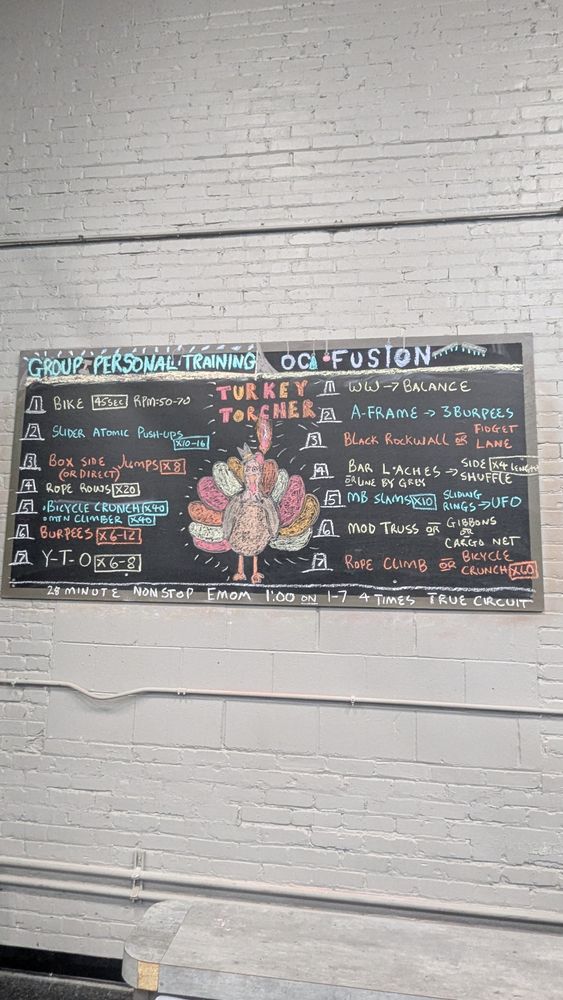 GROUP PERSONAL TRAINING
1 BIKE 45SEC RPM-50-70
2 SLIDER ATOMIC PUSH-UPS
X10-16
3 BOX SIDE JUMPS X8
(OR DIRECT)
4 ROPE ROWS X20
5 BICYCLE CRUNCH X40
MTN CLIMBER X40
6 BURPEES X6-12
7 Y-T-O X6-8
TURKEY
TORCHER
OC FUSION
1 WW → BALANCE
2 A-FRAME → 3 BURPEES
3 BLACK ROCKWALL OR FIDGET
LANE
4 BAR L'ACHES → SIDE X4 LENGTHS
OR LINE BY GREY SHUFFLE
5 MB SLAMS X10 SLIDING
RINGS → UFO
6 MOD TRUSS OR GIBBONS
OR
CARGO NET
7 ROPE CLIMB OR BICYCLE
CRUNCH
28 MINUTE NONSTOP EMOM 1:00 ON 1-7 4 TIMES TRUE CIRCUIT